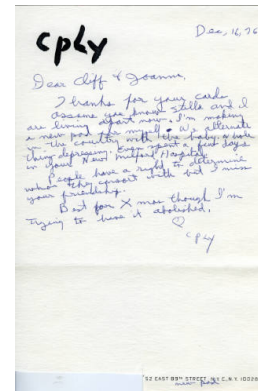 cply
Dec, 16, 76
Dear Cliff & Joanne,
Thanks for your cards
assume you know Stella and I
are living apart now. I'm making
a new pad for myself. We alternate
in the country with the baby. whole
thing depressing. Even spent a few days
in your New Milford Hospital.
People have a right to determine
whom they consort with but I miss
your friendship.
Best for X mas though I'm
trying to have it abolished.
cply
52 EAST 89TH STREET, N.Y.C., N.Y. 10028
new pad